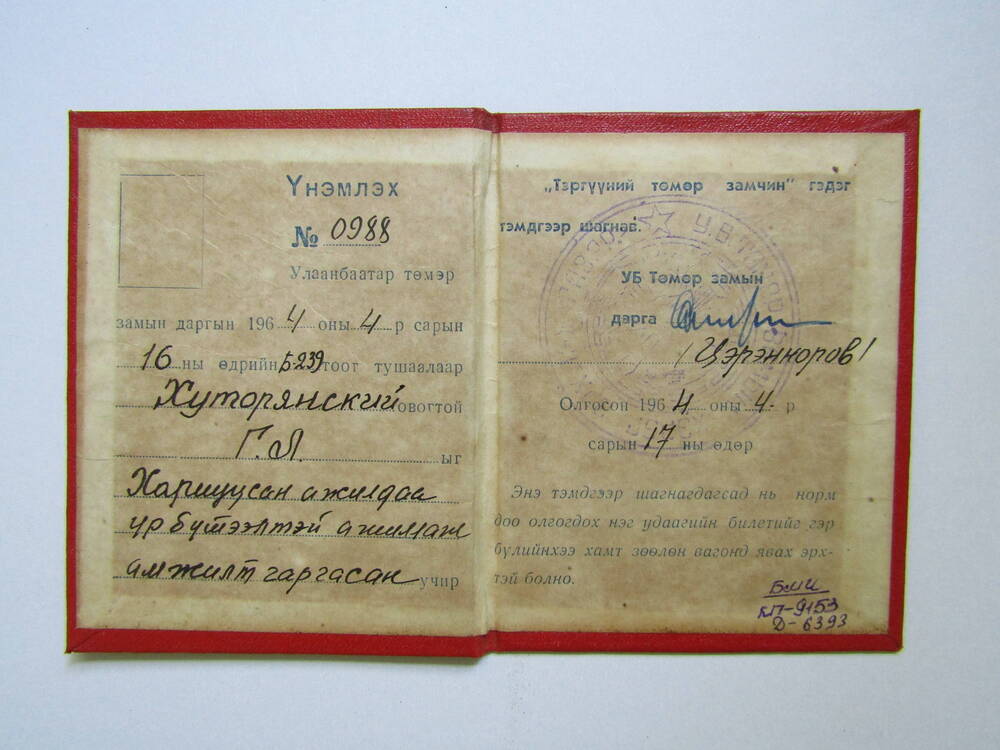 Үнэмлэх
№ 0988
Улаанбаатар төмөр
замын даргын 1964 оны 4 р сарын
16 ны өдрийн Б-239 тоот тушаалаар
Хуторянский овогтой
Г.Л. ыг
Хариуцсан ажилдаа
үр бүтээлтэй ажиллаж
амжилт гаргасан учир
„Тэргүүний төмөр замчин" гэдэг
тэмдгээр шагнав.
УБ Төмөр замын
дарга
/Цэрэнноров/
Олгосон 1964 оны 4 р
сарын 17 ны өдөр
Энэ тэмдгээр шагнагдагсад нь норм
доо олгогдох нэг удаагийн билетийг гэр
бүлийнхээ хамт зөөлөн вагонд явах эрх-
тэй болно.
БМИ
КП-9153
Д-6393